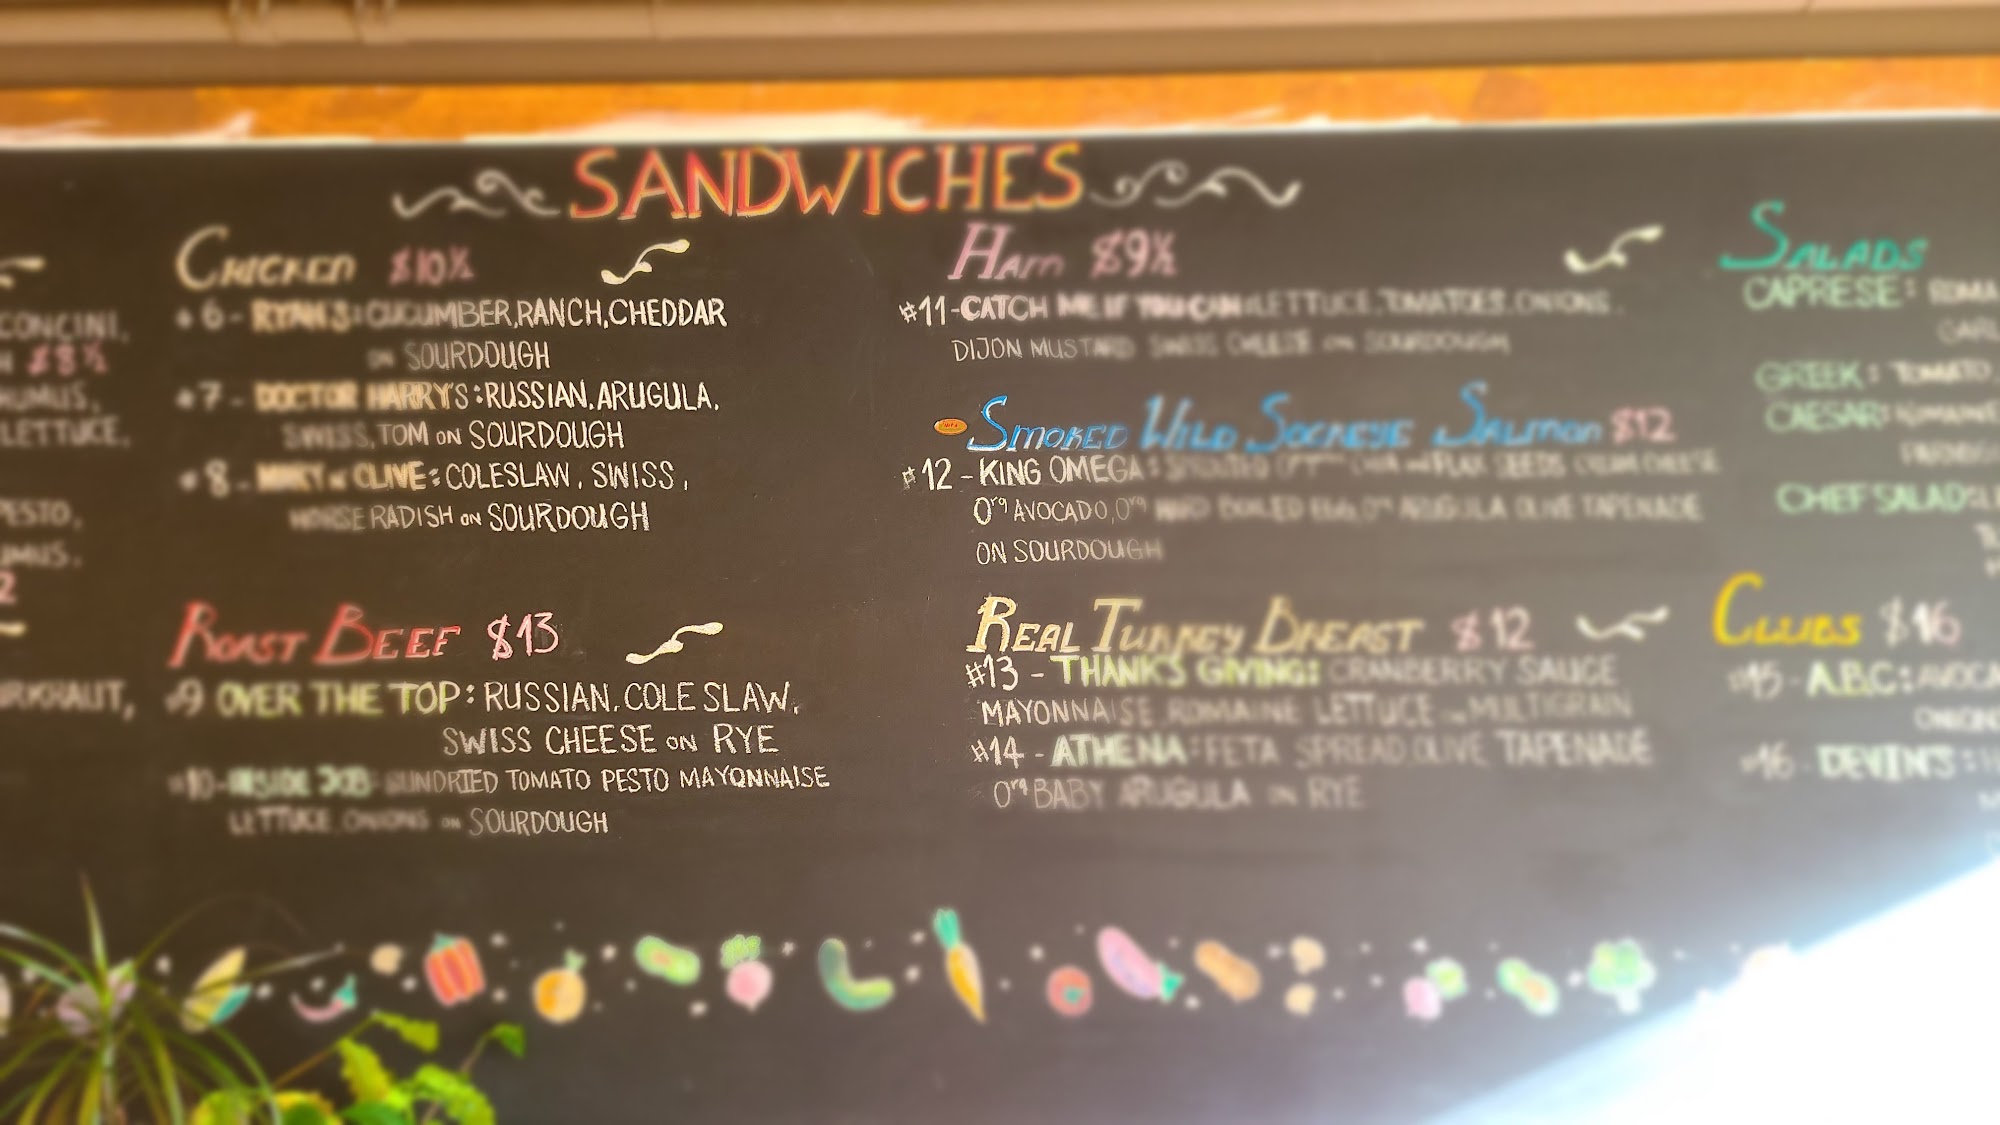 SANDWICHES
CHICKEN $10½
#6 - RYAN'S: CUCUMBER, RANCH, CHEDDAR
ON SOURDOUGH
#7 - DOCTOR HARRY'S: RUSSIAN, ARUGULA,
SWISS, TOM ON SOURDOUGH
#8 - CLIVE: COLESLAW, SWISS,
HORSERADISH ON SOURDOUGH
ROAST BEEF $13
#9 OVER THE TOP: RUSSIAN, COLE SLAW,
SWISS CHEESE ON RYE
#10 - INSIDE JOB SUNDRIED TOMATO PESTO MAYONNAISE
LETTUCE, ONIONS ON SOURDOUGH
HAM $9½
#11 - CATCH ME IF YOU CAN: LETTUCE, TOMATOES, ONIONS,
DIJON MUSTARD SWISS CHEESE ON SOURDOUGH
SMOKED WILD SOCKEYE SALMON $12
#12 - KING OMEGA: SPROUTED CHIA AND FLAX SEEDS CREAM CHEESE
Org AVOCADO, Org HARD BOILED EGG, Org ARUGULA OLIVE TAPENADE
ON SOURDOUGH
REAL TURKEY BREAST $12
#13 - THANKS GIVING: CRANBERRY SAUCE
MAYONNAISE, ROMAINE LETTUCE ON MULTIGRAIN
#14 - ATHENA: FETA SPREAD, OLIVE TAPENADE
Org BABY ARUGULA ON RYE
SALADS
CAPRESE:
GREEK: TOMATO,
CAESAR:
CHEF SALAD:
CLUBS $16
#15 - A.B.C:
#16 - DEVIN'S:
CONCINI,
$8½
LETTUCE,
PESTO,